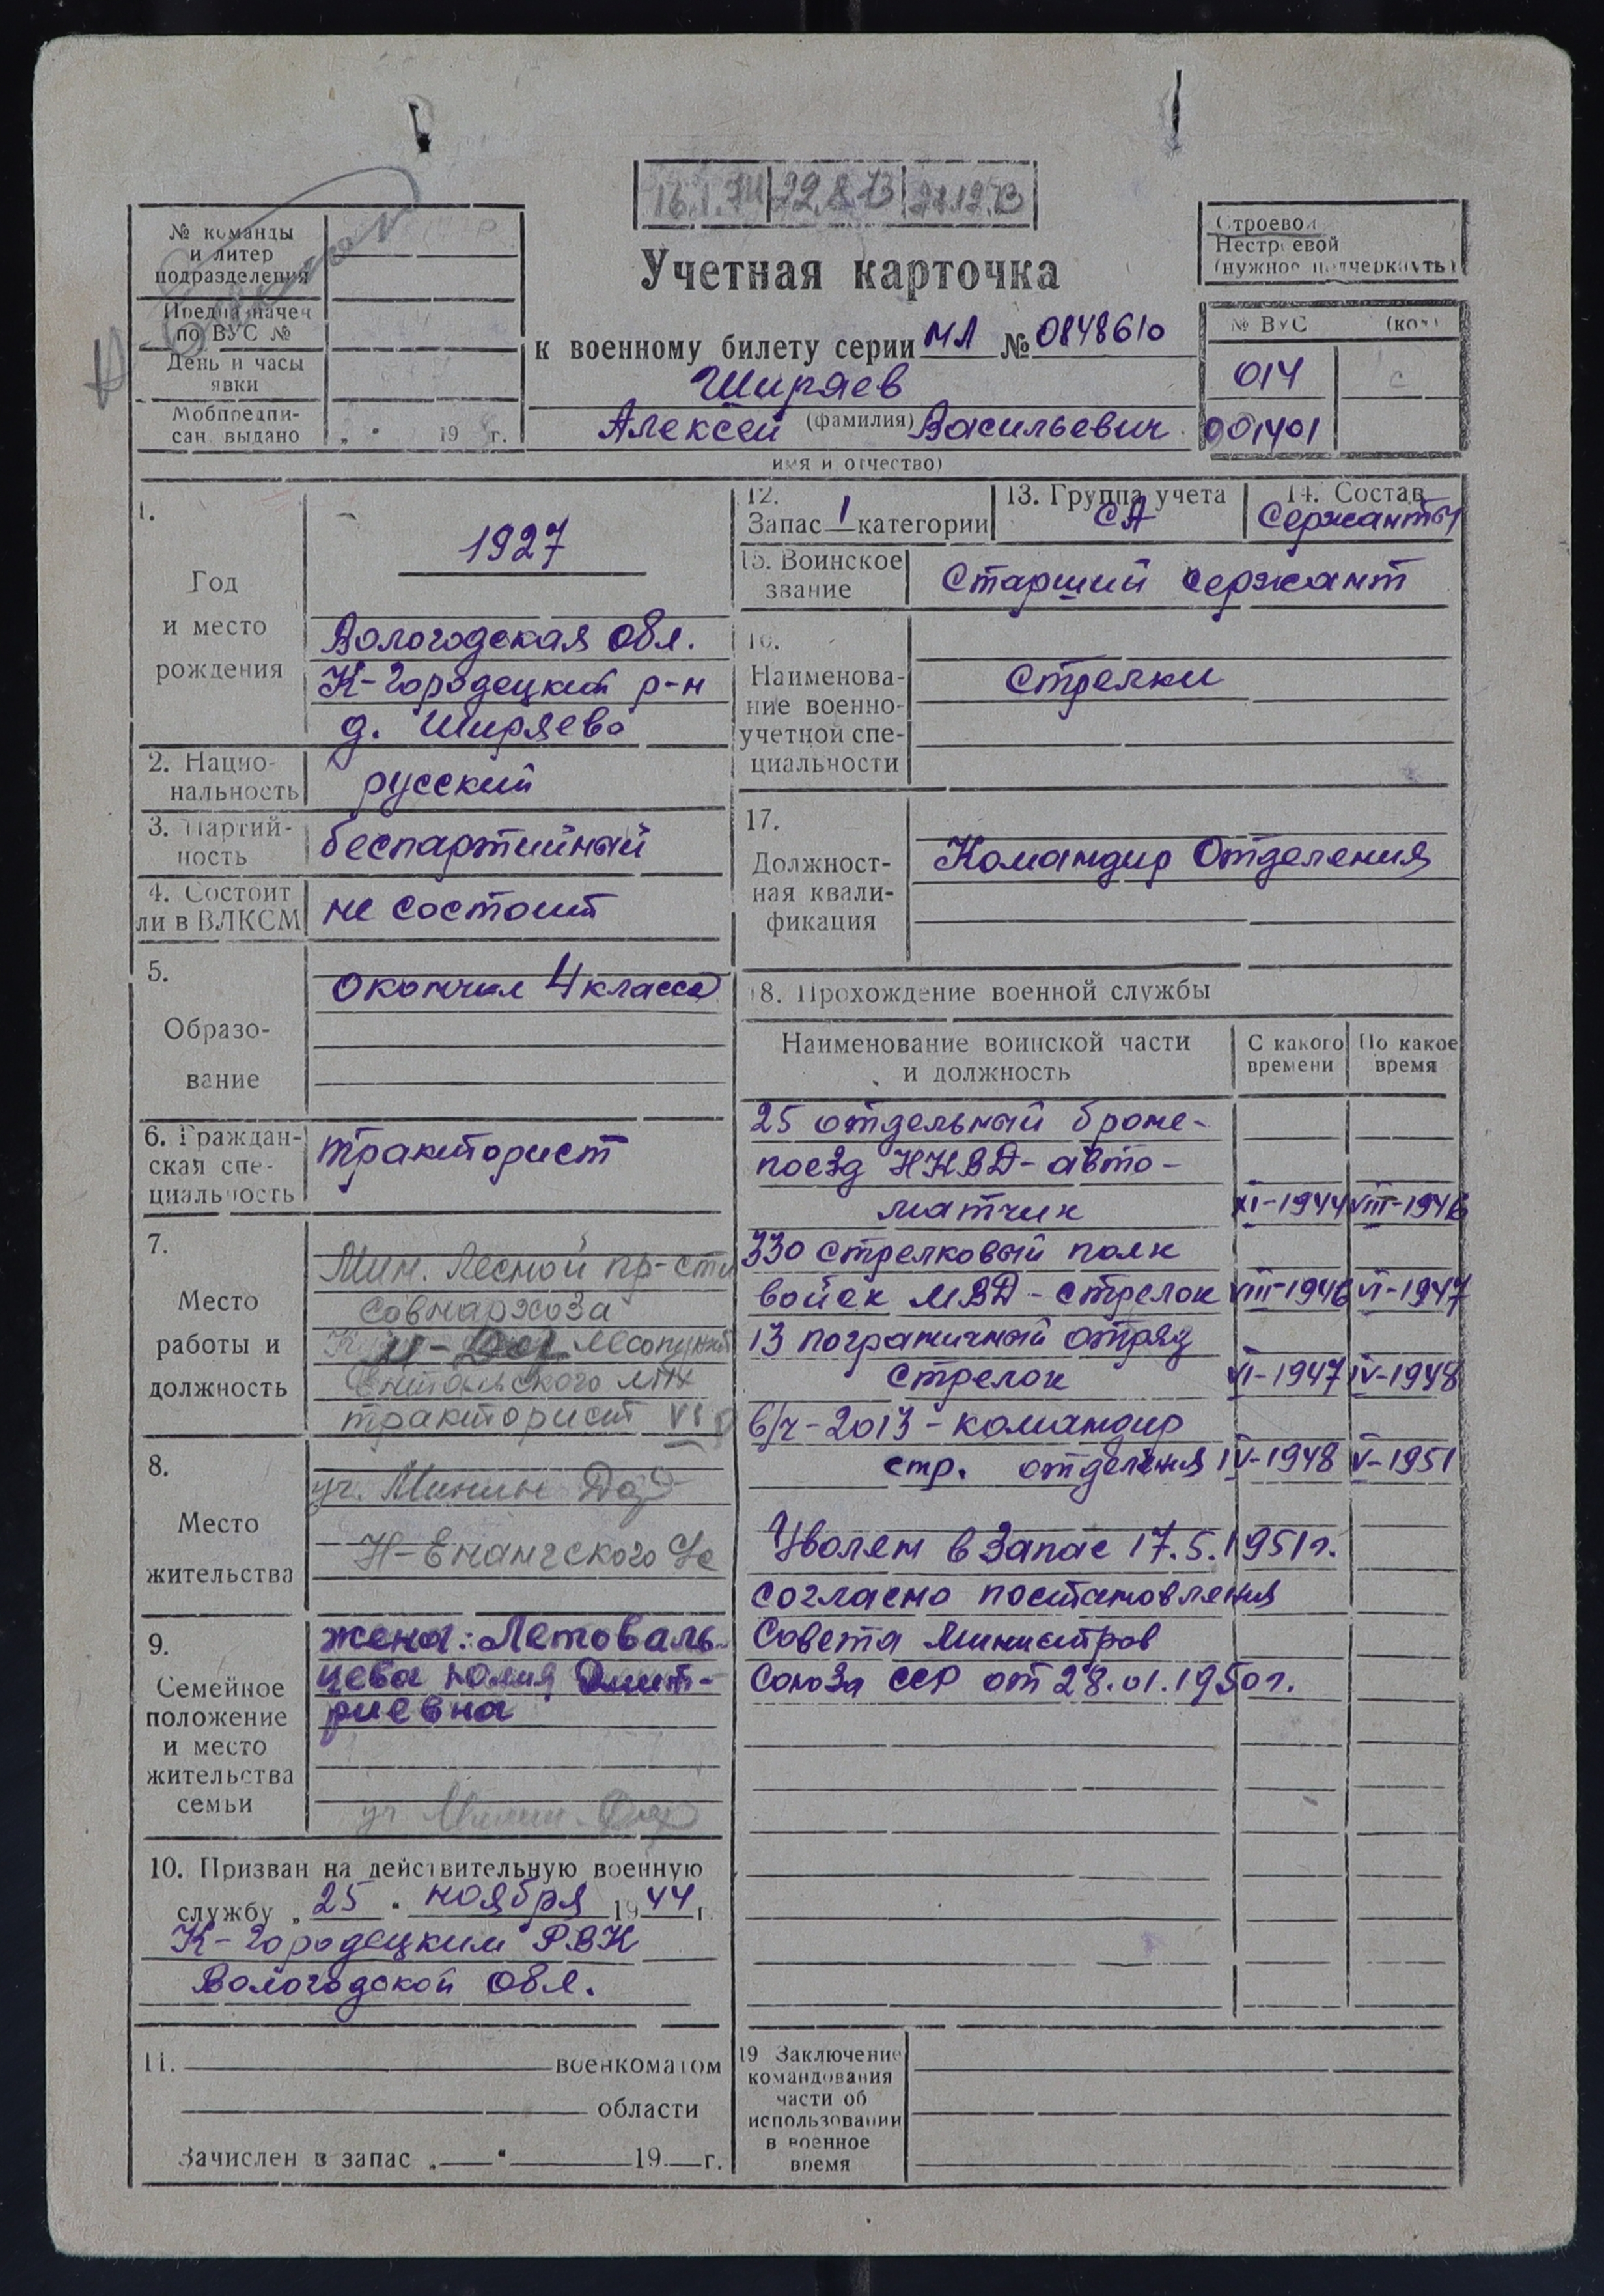 16.1.74 22.8.73 27.12.73
№ команды
и литер
подразделения
Предназначен
по ВУС №
День и часы
явки
Мобпредпи-
сан. выдано „ “ 19 г.
Учетная карточка
к военному билету серии МЛ № 0848610
Ширяев
(фамилия)
Алексей Васильевич
имя и отчество)
Строевой
Нестроевой
(нужное подчеркнуть)
№ ВУС (код)
014
001401
1.
Год
и место
рождения
1927
Вологодская обл.
К-Городецкий р-н
д. Ширяево
2. Нацио-
нальность
русский
3. Партий-
ность
беспартийный
4. Состоит
ли в ВЛКСМ
не состоит
5.
Образо-
вание
окончил 4 класса
6. Граждан-
ская спе-
циальность
тракторист
7.
Место
работы и
должность
Мин. Лесной пр-сти
совнархоза
лесопункт
тракторист
8.
Место
жительства
уч. Минин Дор
Н-Енангского
9.
Семейное
положение
и место
жительства
семьи
жена: Летоваль-
цева Юлия Дмит-
риевна
уч Минин-Дор
10. Призван на действительную военную
службу „25“ ноября 1944 г.
К-Городецким РВК
Вологодской обл.
11. военкоматом
области
Зачислен в запас „ “ 19 г.
12.
Запас 1 категории
13. Группа учета
СА
14. Состав
Сержанты
15. Воинское
звание
Старший сержант
16.
Наименова-
ние военно-
учетной спе-
циальности
Стрелки
17.
Должност-
ная квали-
фикация
Командир Отделения
18. Прохождение военной службы
Наименование воинской части
и должность
С какого
времени
По какое
время
25 отдельный броне-
поезд НКВД-авто-
матчик XI-1944 VIII-1946
330 стрелковый полк
войск МВД-стрелок VIII-1946 VI-1947
13 пограничный отряд
стрелок VI-1947 IV-1948
в/ч-2013-командир
стр. отделения IV-1948 V-1951
Уволен в запас 17.5.1951г.
согласно постановления
Совета Министров
Союза ССР от 28.01.1950г.
19 Заключение
командования
части об
использовании
в военное
время